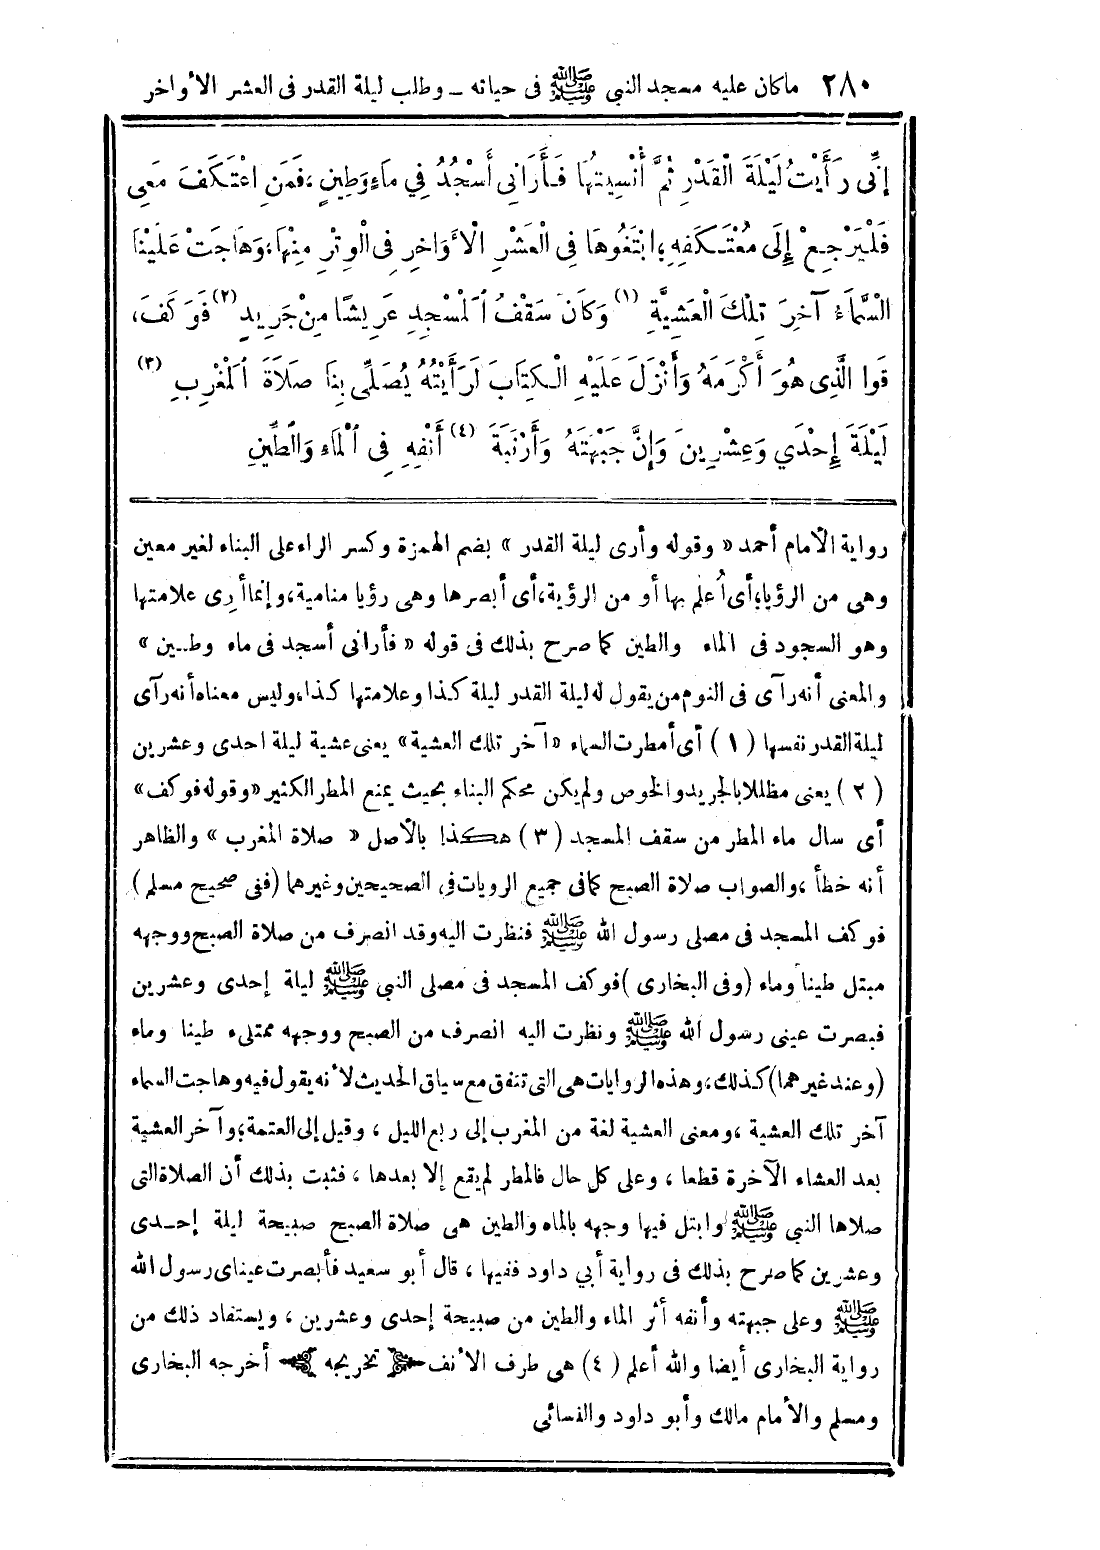 ٢٨٠ ماكان عليه مسجد النبي ﷺ فى حياته ــ وطلب ليلة القدر فى العشر الأواخر
إِنِّى رَأَيْتُ لَيْلَةَ الْقَدْرِ ثُمَّ أُنْسِيتُهَا فَأَرَانِى أَسْجُدُ فِي مَاءٍ وَطِينٍ، فَمَنِ اعْتَكَفَ مَعِى
فَلْيَرْجِعْ إِلَى مُعْتَكَفِهِ؛ ابْتَغُوهَا فِى الْعَشْرِ الْأَوَاخِرِ فِى الْوِتْرِ مِنْهَا، وَهَاجَتْ عَلَيْنَا
السَّمَاءُ آخِرَ تِلْكَ الْعَشِيَّةِ (١) وَكَانَ سَقْفُ الْمَسْجِدِ عَرِيشًا مِنْ جَرِيدٍ (٢) فَوَكَفَ،
فَوَا الَّذِى هُوَ أَكْرَمَهُ وَأَنْزَلَ عَلَيْهِ الْكِتَابَ لَرَأَيْتُهُ يُصَلِّى بِنَا صَلَاةَ الْمَغْرِبِ (٣)
لَيْلَةَ إِحْدَي وَعِشْرِينَ وَإِنَّ جَبْهَتَهُ وَأَرْنَبَةَ (٤) أَنْفِهِ فِى الْمَاءِ وَالطِّينِ
رواية الأمام أحمد « وقوله وأرى ليلة القدر » بضم الهمزة وكسر الراء على البناء لغير معين
وهى من الرؤيا؛ أى أُعلم بها أو من الرؤية، أى أبصرها وهى رؤيا منامية، وإنما أرى علامتها
وهو السجود فى الماء والطين كما صرح بذلك فى قوله « فأرانى أسجد فى ماء وطين »
والمعنى أنه رآى فى النوم من يقول له ليلة القدر ليلة كذا وعلامتها كذا، وليس معناه أنه رآى
ليلة القدر نفسها ( ١ ) أى أمطرت السماء «آخر تلك العشية» يعنى عشية ليلة احدى وعشرين
( ٢ ) يعنى مظللا بالجريد والخوص ولم يكن محكم البناء بحيث يمنع المطر الكثير «وقوله فوكف»
أى سال ماء المطر من سقف المسجد ( ٣ ) هكذا بالأصل « صلاة المغرب » والظاهر
أنه خطأ ، والصواب صلاة الصبح كما فى جميع الرويات فى الصحيحين وغيرهما (ففى صحيح مسلم)
فوكف المسجد فى مصلى رسول الله ﷺ فنظرت اليه وقد انصرف من صلاة الصبح ووجهه
مبتل طينا وماء (وفى البخارى ) فوكف المسجد فى مصلى النبي ﷺ ليلة إحدى وعشرين
فبصرت عينى رسول الله ﷺ ونظرت اليه انصرف من الصبح ووجهه ممتلىء طينا وماء
(وعند غيرهما) كذلك، وهذه الروايات هى التى تتفق مع سياق الحديث لأنه يقول فيه وهاجت السماء
آخر تلك العشية ، ومعنى العشية لغة من المغرب إلى ربع الليل ، وقيل إلى العتمة؛ وآخر العشية
بعد العشاء الآخرة قطعا ، وعلى كل حال فالمطر لم يقع إلا بعدها ، فثبت بذلك أن الصلاة التى
صلاها النبي ﷺ وابتل فيها وجهه بالماء والطين هى صلاة الصبح صبيحة ليلة إحدى
وعشرين كما صرح بذلك فى رواية أبي داود ففيها ، قال أبو سعيد فأبصرت عيناى رسول الله
ﷺ وعلى جبهته وأنفه أثر الماء والطين من صبيحة إحدى وعشرين ، ويستفاد ذلك من
رواية البخارى أيضا والله أعلم ( ٤ ) هى طرف الأنف تخريجه أخرجه البخارى
ومسلم والأمام مالك وأبو داود والنسائى